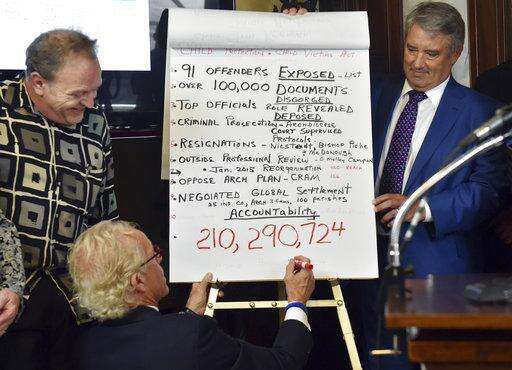 CHILD PROTECTION - CHILD VICTIMS ACT
91 OFFENDERS EXPOSED - LIST
OVER 100,000 DOCUMENTS
DISGORGED
TOP OFFICIALS ROLE REVEALED
DEPOSED
CRIMINAL PROSECUTION - ARCHDIOCESE
COURT SUPERVISED
PROTOCOLS
RESIGNATIONS - NIENSTEDT, BISHOP PICHE
& McDONOUGH
OUTSIDE PROFESSIONAL REVIEW -
JAN. 2015 REORGANIZATION
OPPOSE ARCH PLAN - CRAM
NEGOIATED GLOBAL SETTLEMENT
100 PARISHES
ACCOUNTABILITY
210, 290, 724